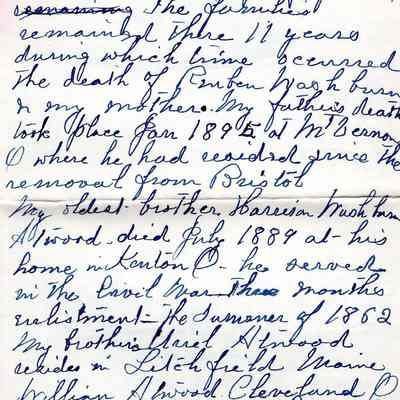 remaining The families
remained there 11 years
during which time occurred
the death of Reuben Washburn
& my mother. My father's death
took place Jan 1895 at Mt Vernon
O where he had resided since the
removal from Bristol
My oldest brother Harrison Washburn
Atwood died July 1889 at his
home in Kenton O - he served
in the Civil War Three months
enlistment - The Summer of 1862
My brother Uriel Atwood
resides in Litchfield Maine
William Atwood Cleveland O